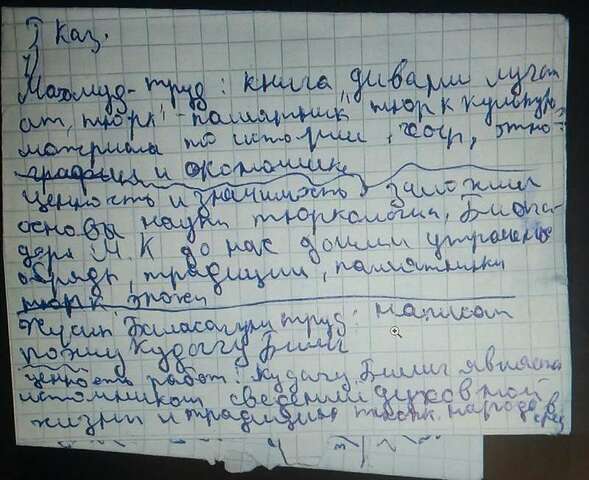 3 каз.
Махмуд-труд: книга "дивани лугат
ат, тюрк" - памятник тюрк культур,
материал по истории, геогр, этно-
графии и экономике
ценность и значимость заложил
основы науки тюркологии, Благо-
даря М.К до нас дошли утраченные
обряды, традиции, памятники
тюрк эпохи
Жусип Баласагуни труд: написал
поэму Кудатгу Билиг
ценность работ: Кудатгу Билиг является
источником сведений духовной
жизни и традиции тюрк. народов